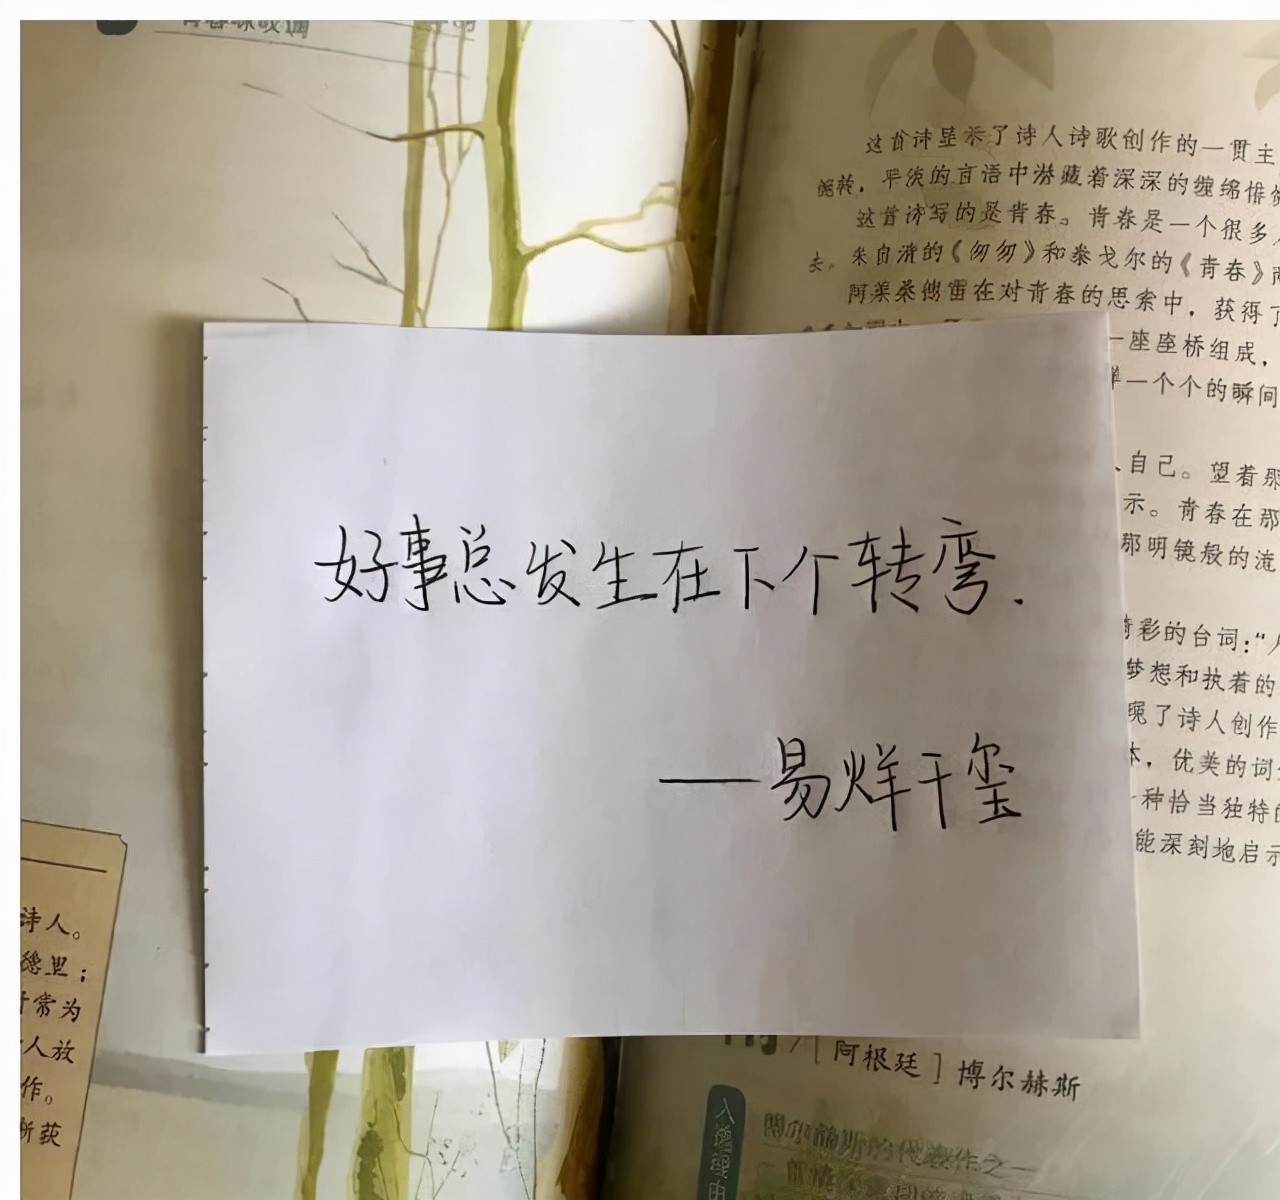 这首诗显示了诗人诗歌创作的一贯主
婉转，平淡的言语中潜藏着深深的缠绵悱
这首诗写的是青春。青春是一个很多
去。朱自清的《匆匆》和泰戈尔的《青春》
在对青春的思索中，获得了
一座座桥组成，
一个个的瞬间
好事总发生在下个转弯.
——易烊千玺
自己。望着那
示。青春在那
那明镜般的流
彩的台词：“人
梦想和执着的
现了诗人创作
体，优美的词
一种恰当独特的
能深刻地启示
诗人。
常为
人放
作。
斩获
[阿根廷] 博尔赫斯